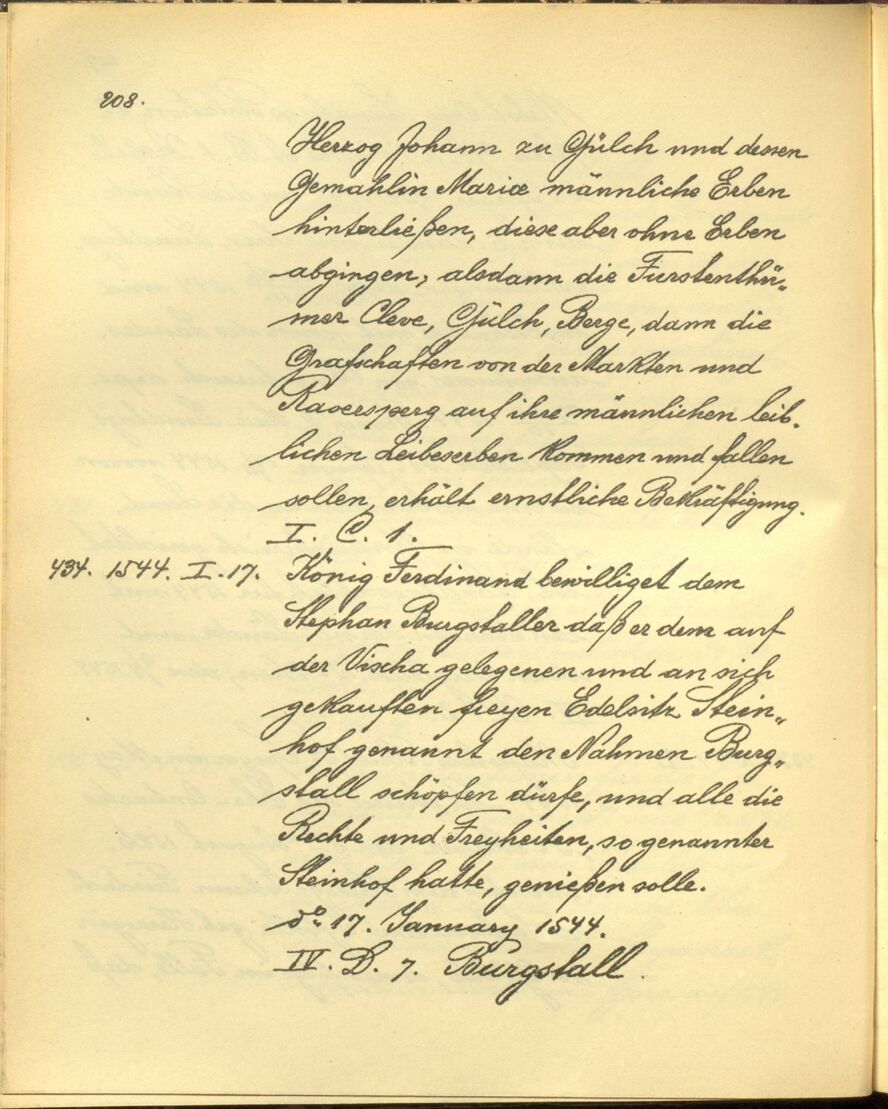 208.
Herzog Johann zu Gülch und dessen
Gemahlin Mariæ männliche Erben
hinterließen, diese aber ohne Erben
abgingen, alsdann die Fürstenthü„
mer Cleve, Gülch, Berge, dann die
Grafschaften von der Markten und
Raversperg auf ihre männlichen leib„
lichen Leibeserben kommen und fallen
sollen, erhält ernstliche Bekräftigung.
I. C. 1.
434. 1544. I. 17. König Ferdinand bewilliget dem
Stephan Burgstaller daß er dem auf
der Vischa gelegenen und an sich
gekauften freyen Edelsitz Stein„
hof genannt den Nahmen Burg„
stall schöpfen dürfe, und alle die
Rechte und Freyheiten, so genannter
Steinhof hatte, genießen solle.
do 17. January 1544.
IV. D. 7. Burgstall.